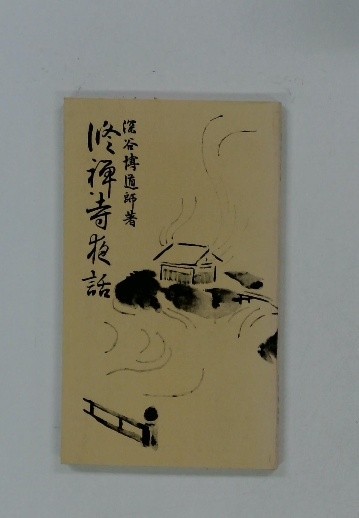 深谷博道師著
修禅寺夜話